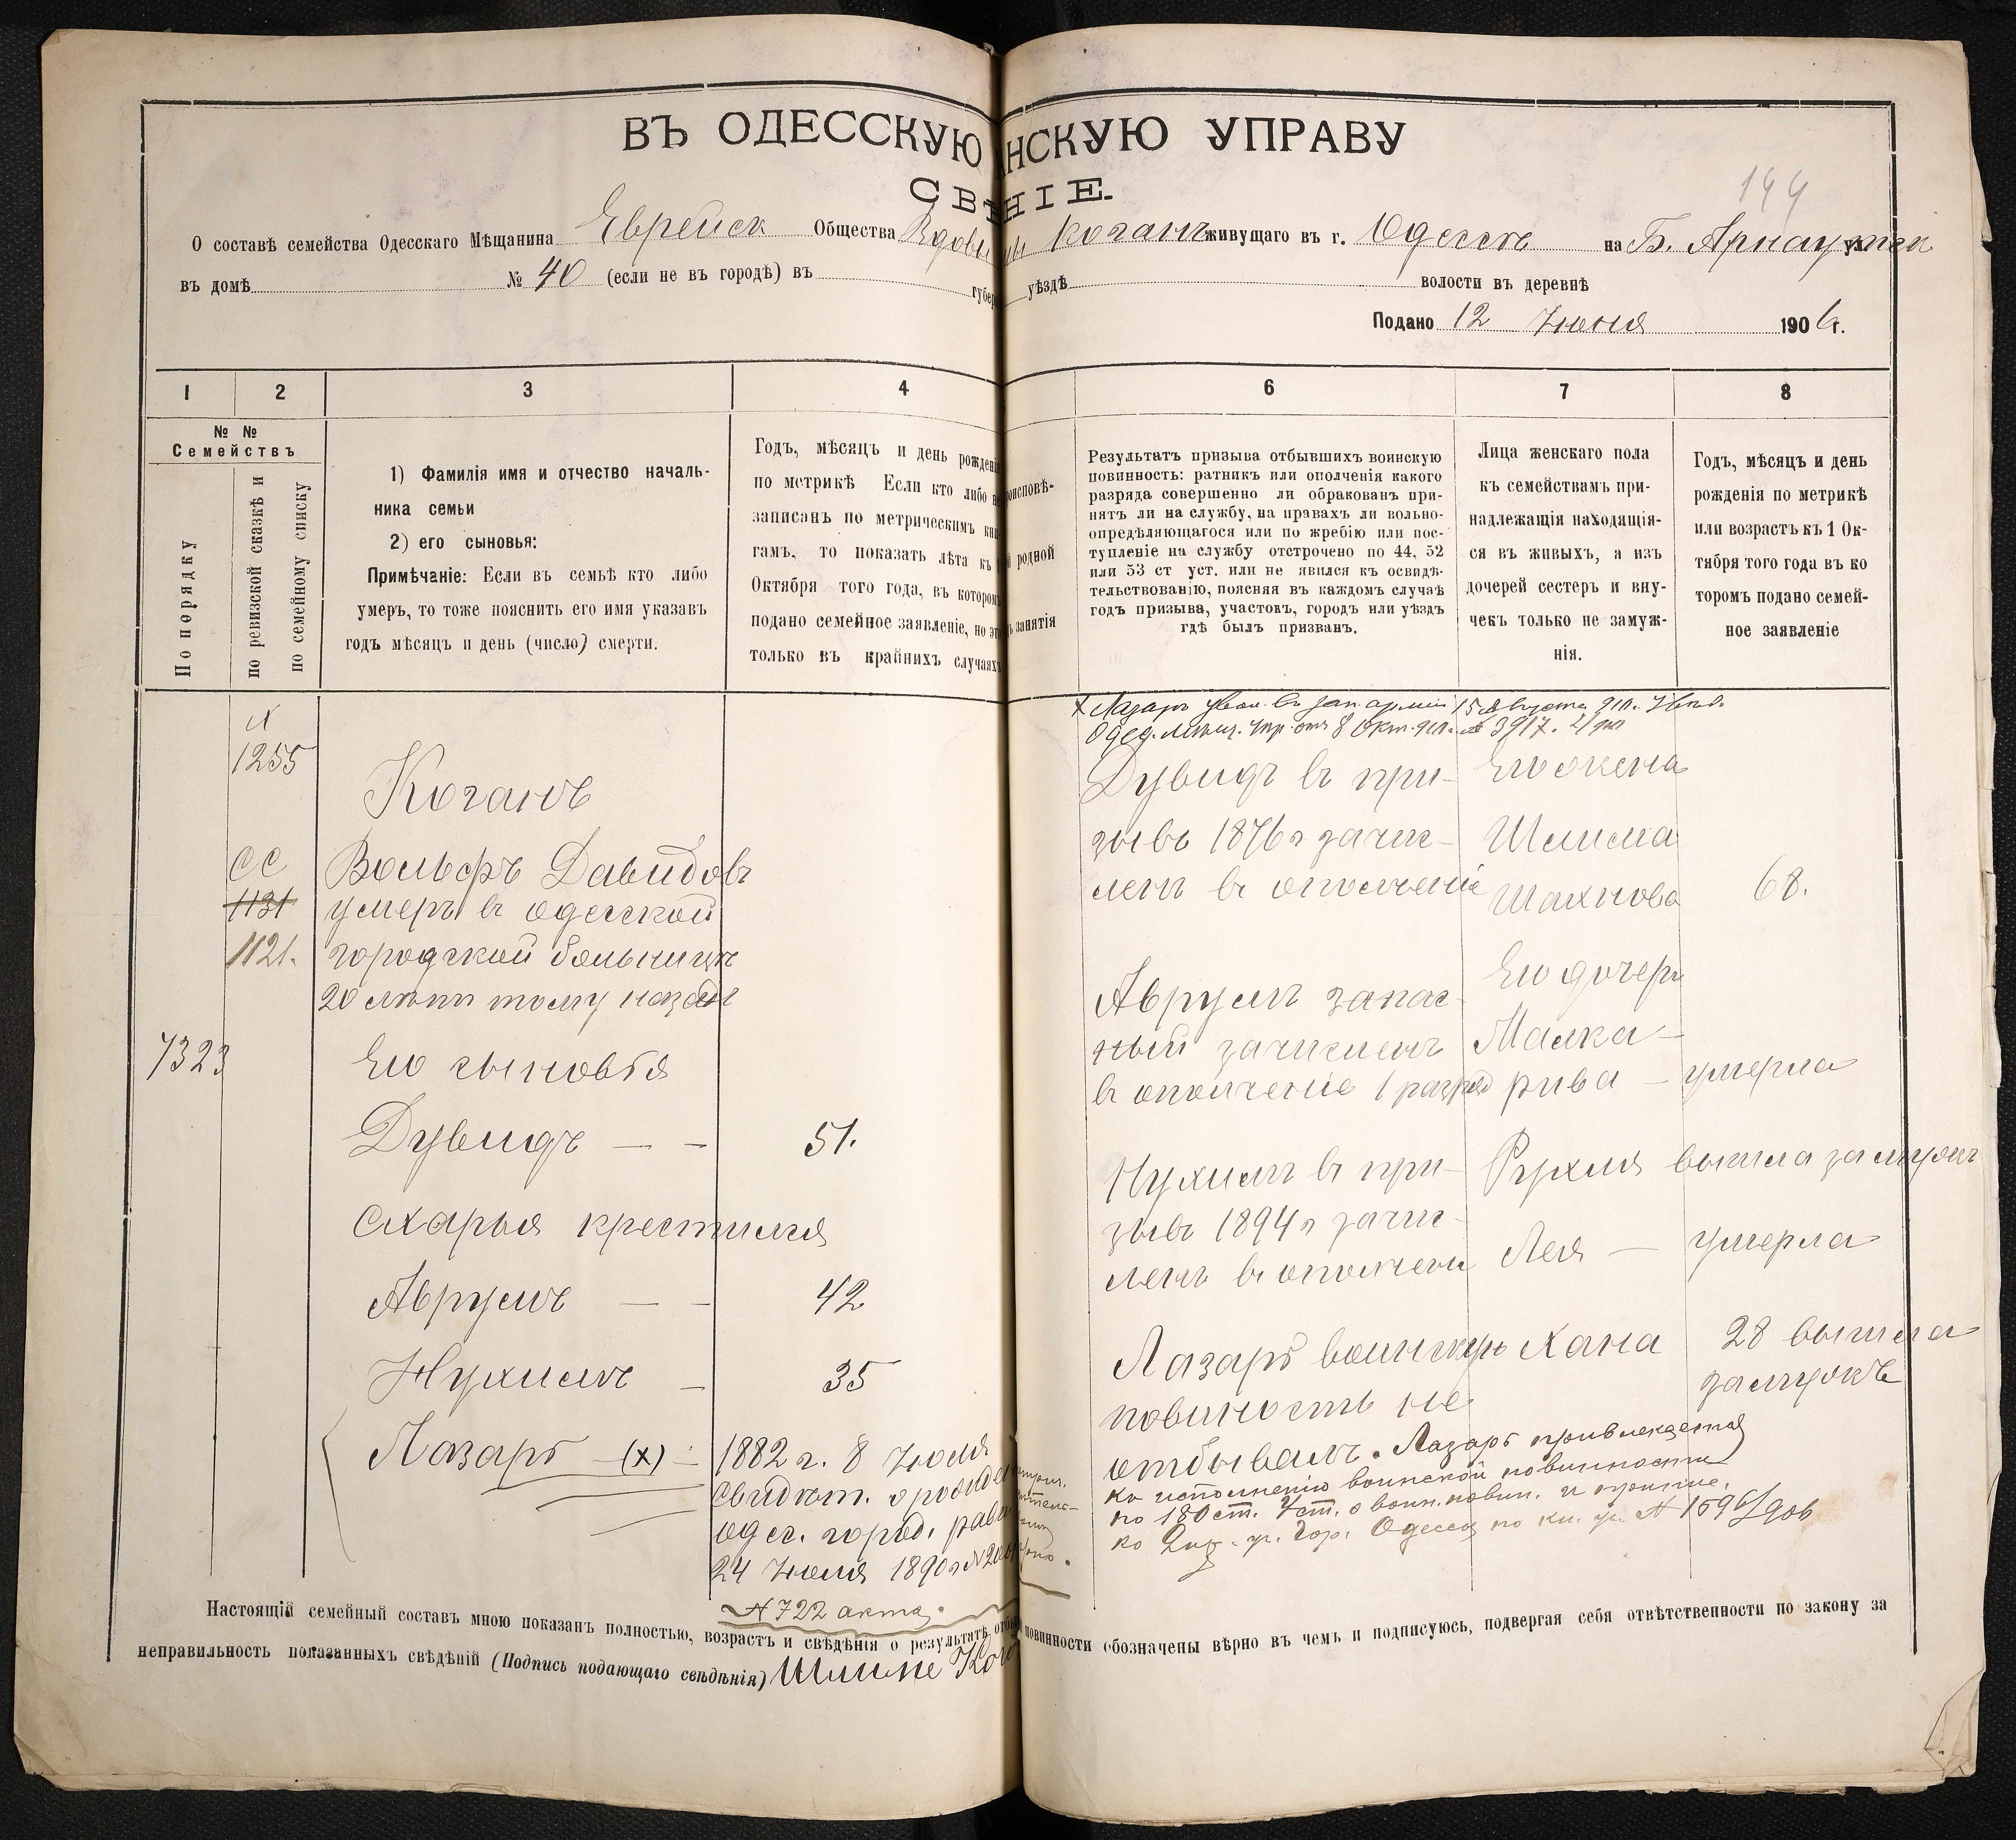 ВЪ ОДЕССКУЮ НСКУЮ УПРАВУ
СВѢНІЕ.
144
О составѣ семейства Одесскаго Мѣщанина Еврейск Общества Вдовы Коганъ живущаго въ г. Одессѣ на Б. Арнаутск
въ домѣ № 40 (если не въ городѣ) въ губер уѣздѣ волости въ деревнѣ
Подано 12 Июня 1906 г.
1 2 3 4 6 7 8
№ №
Семействъ
По порядку
по ревизской сказкѣ и
по семейному списку
1) Фамилія имя и отчество началь-
ника семьи
2) его сыновья:
Примѣчаніе: Если въ семьѣ кто либо
умеръ, то тоже пояснить его имя указавъ
годъ мѣсяцъ и день (число) смерти.
Годъ, мѣсяцъ и день рожденія
по метрикѣ Если кто либо н
записанъ по метрическимъ кни-
гамъ, то показать лѣта къ
Октября того года, въ которомъ
подано семейное заявленіе, но это
только въ крайнихъ случаяхъ
роисповѣ-
й родной
ъ занятія
Результатъ призыва отбывшихъ воинскую
повинность: ратникъ или ополченія какого
разряда совершенно ли обракованъ при-
нятъ ли на службу, на правахъ ли вольно-
опредѣляющагося или по жребію или пос-
тупленіе на службу отстрочено по 44, 52
или 53 ст уст. или не явился къ освидѣ-
тельствованію, поясняя въ каждомъ случаѣ
годъ призыва, участокъ, городъ или уѣздъ
гдѣ былъ призванъ.
Лица женскаго пола
къ семействамъ при-
надлежащія находящія-
ся въ живыхъ, а изъ
дочерей сестеръ и вну-
чекъ только не замуж-
нія.
Годъ, мѣсяцъ и день
рожденія по метрикѣ
или возрастъ къ 1 Ок-
тября того года въ ко
торомъ подано семей-
ное заявленіе
1255
Коганъ
СС
Вольфъ Давидовъ
1131
умеръ въ одесской
1121.
городской больницѣ
20 лѣтъ тому назадъ
7323
Его сыновья
Дувидъ — — 51.
Схарья крестился
Аврумъ — — 42
Нухимъ — 35
Лазарь — (х) — 1882 г. 8 Июля
Свидѣт. о рожде
одес. город. равв
24 Июля 1890 г №
№ 722 акта
х Лазарь увол. въ зап. арміи 15 Августа 911.
Одес. мѣщ. упр. отъ 8 Окт. 911. № 3917.
Дувидъ въ при-
зывъ 1876 г зачис-
ленъ въ ополченіе
Аврумъ запас-
ный зачисленъ
въ ополченіе 1 разряд
Нухимъ въ при-
зывъ 1894 г зачис-
ленъ въ ополчени
Лазарь воинскую
повиность не
отбывалъ. Лазарь привлекается
къ исполненію воинской повинности
по 180 ст. Уст. о воин. повин. и припис.
ко 2 пр. уч. Гор. Одессы по кн. уч. № 1596/906
Его жена
Шлима
Шахнова 68.
Его дочери
Малка —
Рива — умерла
Рухля вышла замужъ
Лея — умерла
Хана 28 вышла
замужъ
Настоящій семейный составъ мною показанъ полностью, возрастъ и сведѣнія о результатѣ отбы повинности обозначены вѣрно въ чемъ и подписуюсь, подвергая себя отвѣтственности по закону за
неправильность показанныхъ свѣдѣній (Подпись подающаго свѣдѣнія) Шлиме Ког